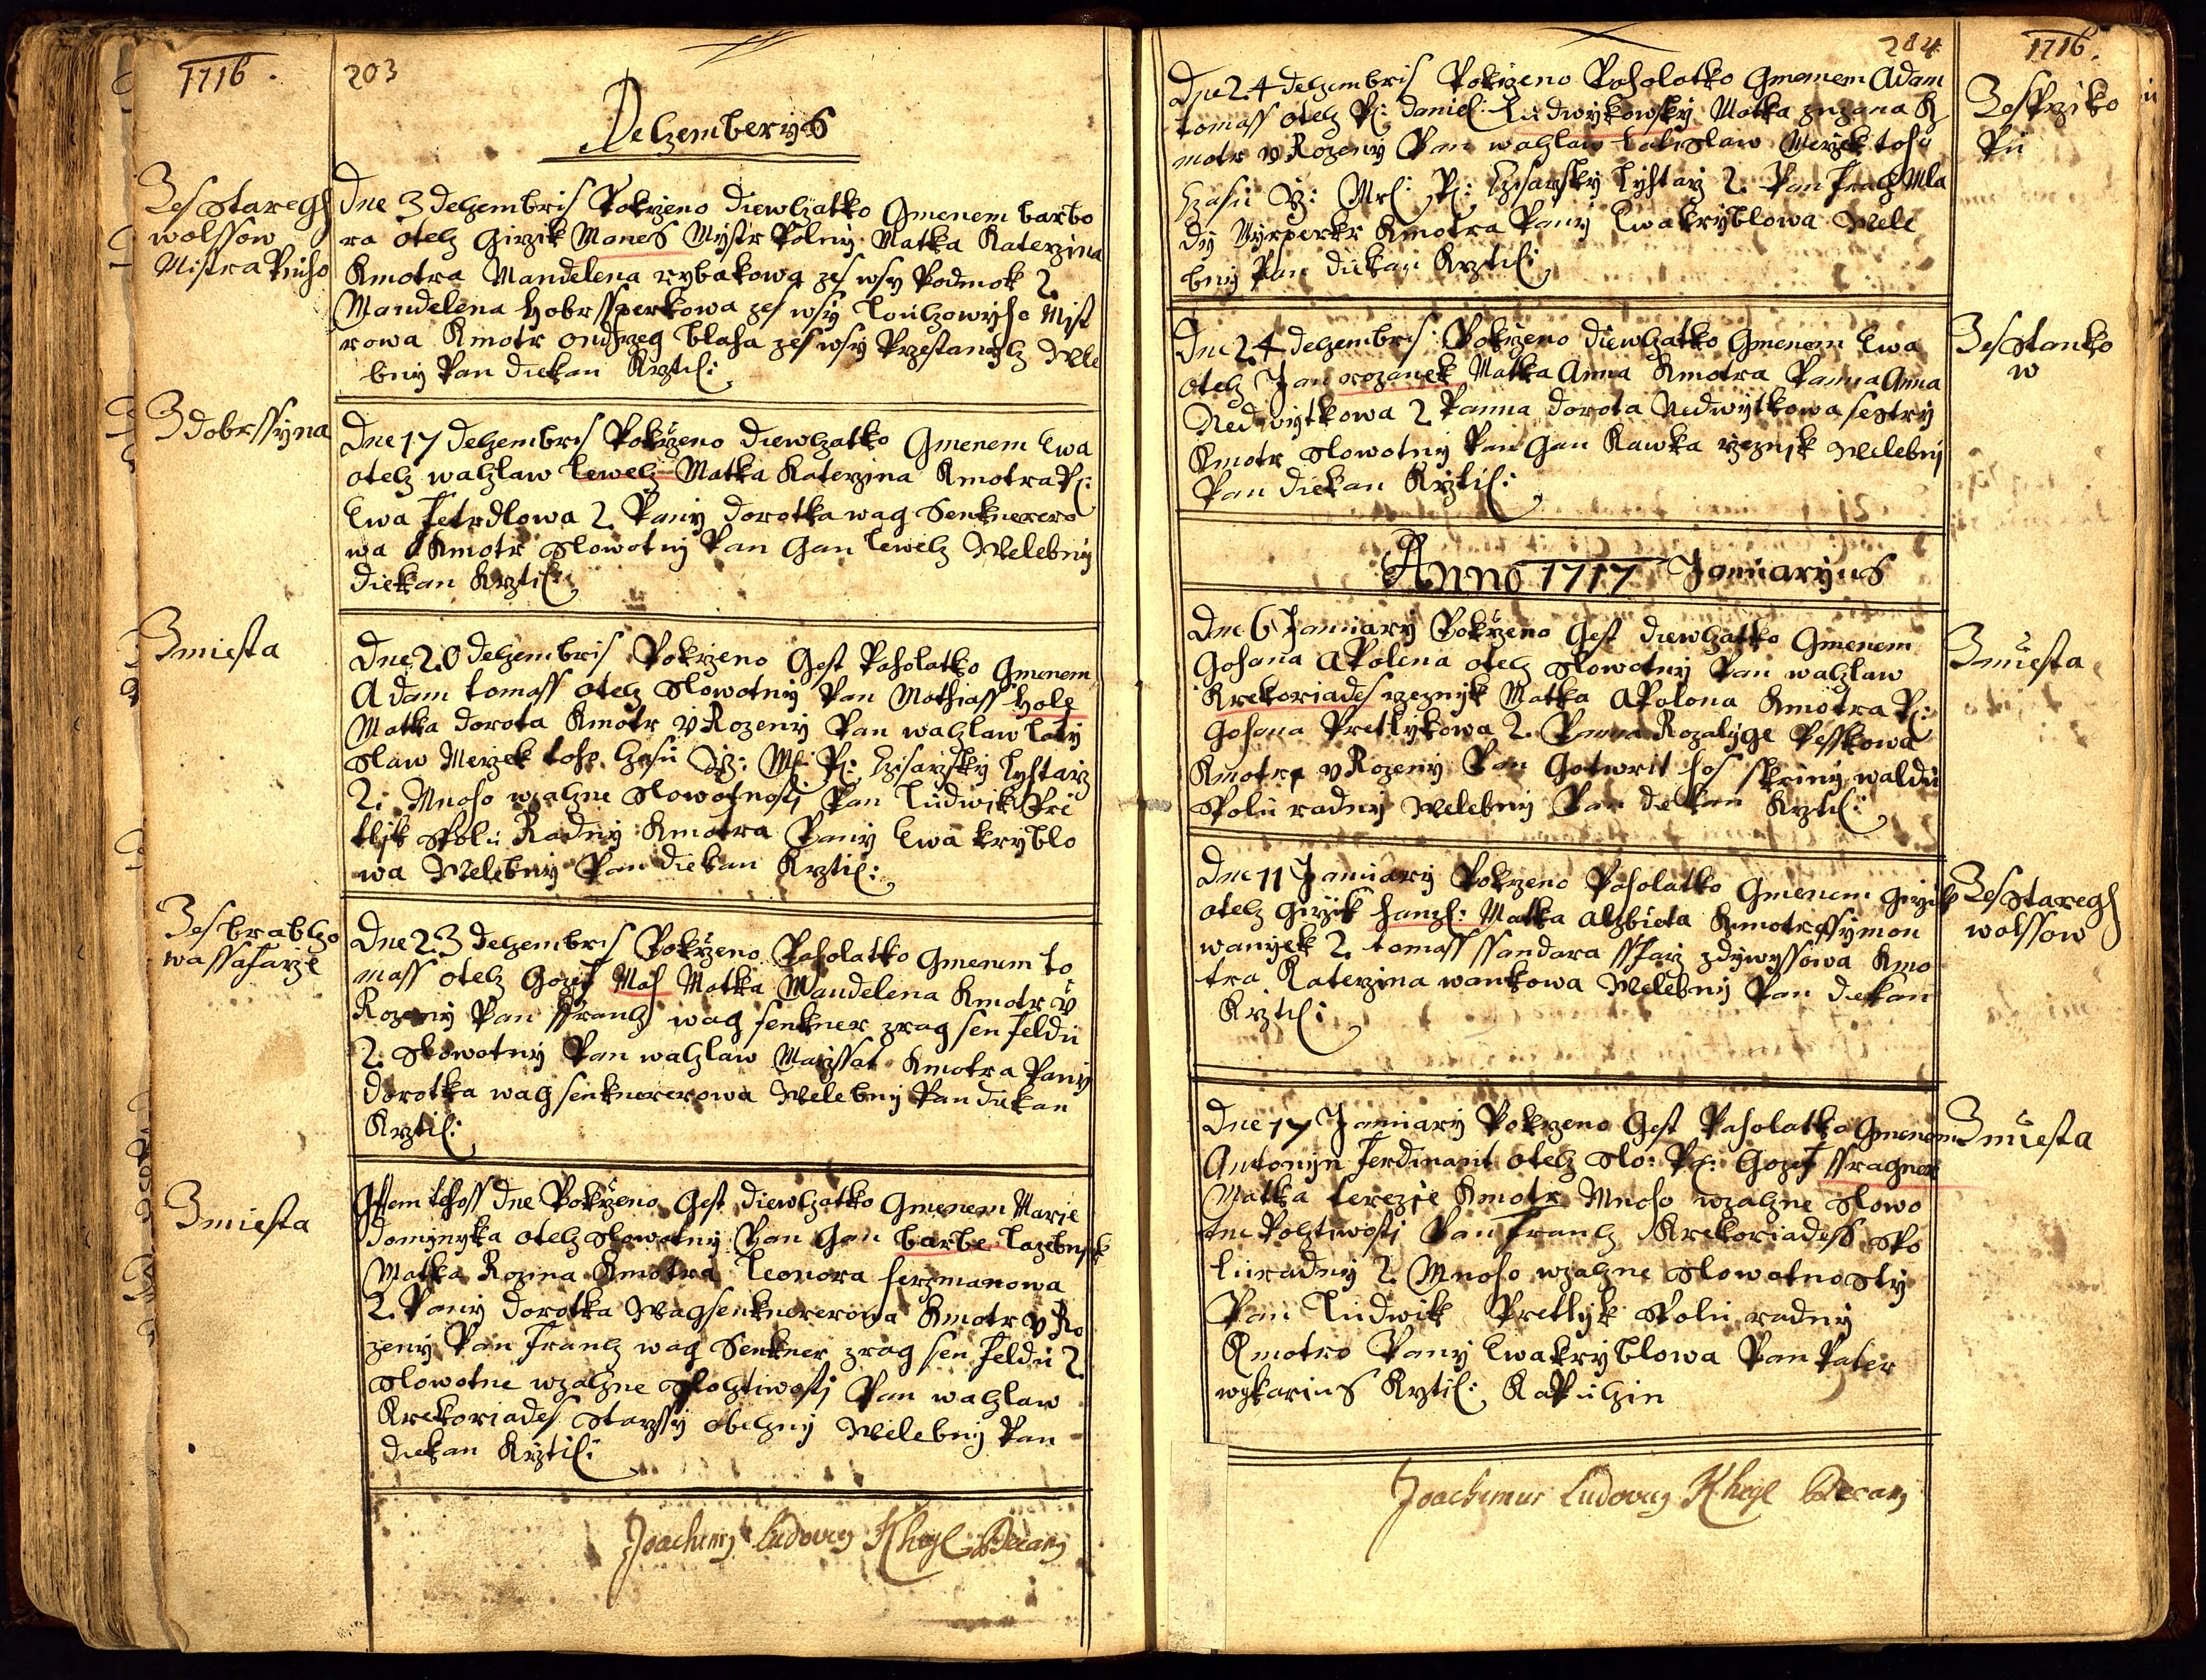 1716.
203
Delzemberys
Ze Staregh
wolssow
Mistra Pniho
Dne 3 delzembris Pokrzeno diewlzatko Gmenem barbo
ra otelz Girzik Manes Mystr Polny Matka Katerzina
Kmotra Mandelena rybakowa zes wsy Podmok 2
Mandelena Hobrssperkowa zes wsy Loulzowyho Myst
rowa Kmotr ondrzeg blaha zes wsy Przestanylz Wele
bny Pan diekan Krztil:
Z dobrssyna
Dne 17 delzembris Pokrzeno diewlzatko Gmenem Ewa
otelz walzlaw Lewelz Matka Katerzina Kmotra P:
Ewa Fetrdlowa 2. Pany dorotka wag Senknerero
wa Kmotr Slowotny Pan Gan Lewelz Welebny
diekan Krztil:
Z miesta
Dne 20 delzembris Pokrzeno Gest Paholatko Gmenem
Adam tomass otelz Slowotny Pan Mathiass Hole
Matka dorota Kmotr V Rozeny Pan walzlaw Laty
Slaw Merzek toho lzasu G: Ml: P: lzisarzsky Lyhtarz
2: Mnoho wzalzne Slowotnosti Pan Ludwik Pre
tlyk Spolu Radny Kmotra Pany Ewa kryblo
wa Welebny Pan diekan Krztil:
Zes brablzo
wa ssafarze
Dne 23 delzembris Pokrzeno Paholatko Gmenem to
mass otelz Gozef Mas Matka Mandelena Kmotr V
Rozeny Pan ffranlz wag senkner zrag sen feldu
2. Slowotny Pan walzlaw Marssat Kmotra Pany
dorotka wag senknererowa Welebny Pan diekan
Krztil:
Z miesta
Ittem tehoss dne Pokrzeno Gest diewlzatko Gmenem Marie
dominyka otelz Slowotny Pan Gan barbe Lazebnyk
Matka Rozina Kmotra Leonora herzmanowa
2. Pany dorotka Wagsenknererowa Kmotr V Ro
zeny Pan Franlz wag Senkner zrag sen feldu 2.
Slowotne wzalzne Polztiwosti Pan walzlaw
Krekoriades Starssy obelzny Welebny Pan
diekan Krztil:
Joachimus Ludovicus Kheyl Decanus
204
1716.
Dne 24 delzembris Pokrzeno Paholatko Gmenem Adam
tomass otelz P: daniel Ludwykowsky Matka zuzana K
motr V Rozeny Pan walzlaw Latislaw Merzek toho
lzasu G: Ml: P: lzisarzsky Lyhtarz 2. Pan Franlz Mla
dy Kmotra Pany Ewa kryblowa Wele
bny Pan diekan Krztil:
Zes Przko
Pu
Dne 24 delzembris Pokrzeno diewlzatko Gmenem Ewa
otelz Jan rozanek Matka Anna Kmotra Panna Anna
Nedwytkowa 2 Panna dorota Nedwytkowa sestry
Kmotr Slowotny Pan Gan Kawka rzeznjk Welebny
Pan diekan Krztil:
Zes Stanko
w
Anno 1717 Januaryus
Dne 6 January Pokrzeno Gest diewlzatko Gmenem
Gohana aPolena otelz Slowotny Pan walzlaw
Krekoriades rzeznyk Matka aPolona Kmotra P:
Gohana Pretlykowa 2. Panna Rozalyge Pesskowa
Kmotr V Rozeny Pan Gotwrit hos skriny waldu
Spolu radny Welebny Pan dekan Krztil:
Z miesta
Dne 11 January Pokrzeno Paholatko Gmenem Girzik
otelz Girzik hanzl: Matka alzbieta Kmotr ssymon
wanyek 2. tomass ssandara ssfarz zdywyssowa Kmo
tra Katerzina wankowa Welebny Pan diekan
Krztil:
Zes Staregh
wolssow
Dne 17 January Pokrzeno Gest Paholatko Gmenem
Antonyn Ferdinant otelz Slo: P: Gozef ssragner
Matka terezie Kmotr Mnoho wzalzne Slowo
tne Polztiwosti Pan Franlz Krekoriadess Spo
lu radny 2. Mnoho wzalzne Slowotnosty
Pan Ludwik Pretlyk Spolu radny
Kmotra Pany Ewa kryblowa Pan Pater
wykarius Krztil: KaPulzin
Z miesta
Joachimus Ludovicus Kheyl Decanus